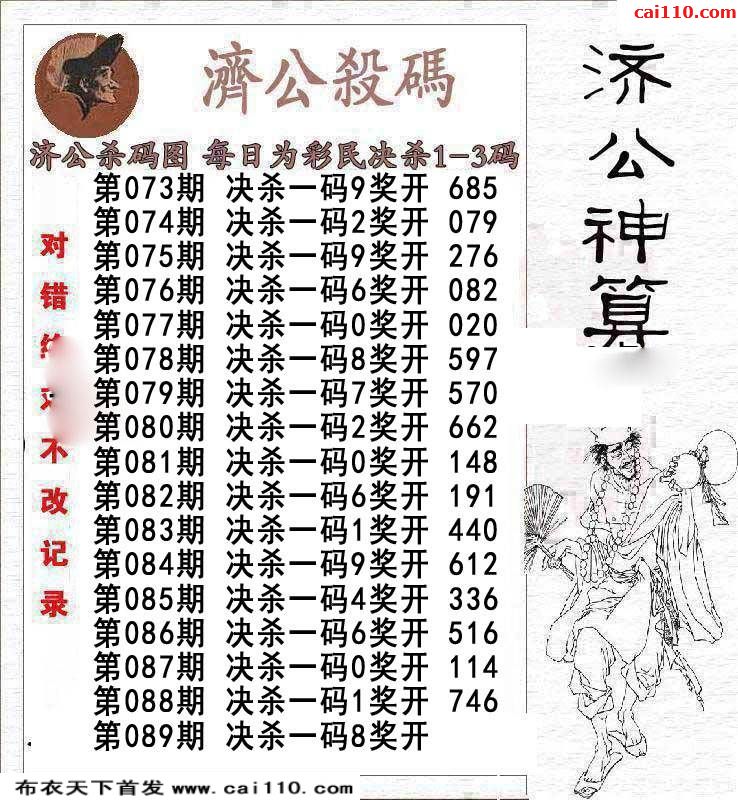 cai110.com
濟公殺碼
济公杀码图 每日为彩民决杀1-3码
第073期 决杀一码9奖开 685
第074期 决杀一码2奖开 079
第075期 决杀一码9奖开 276
第076期 决杀一码6奖开 082
第077期 决杀一码0奖开 020
第078期 决杀一码8奖开 597
第079期 决杀一码7奖开 570
第080期 决杀一码2奖开 662
第081期 决杀一码0奖开 148
第082期 决杀一码6奖开 191
第083期 决杀一码1奖开 440
第084期 决杀一码9奖开 612
第085期 决杀一码4奖开 336
第086期 决杀一码6奖开 516
第087期 决杀一码0奖开 114
第088期 决杀一码1奖开 746
第089期 决杀一码8奖开
对错不改记录
济公神算
布衣天下首发 www.cai110.com